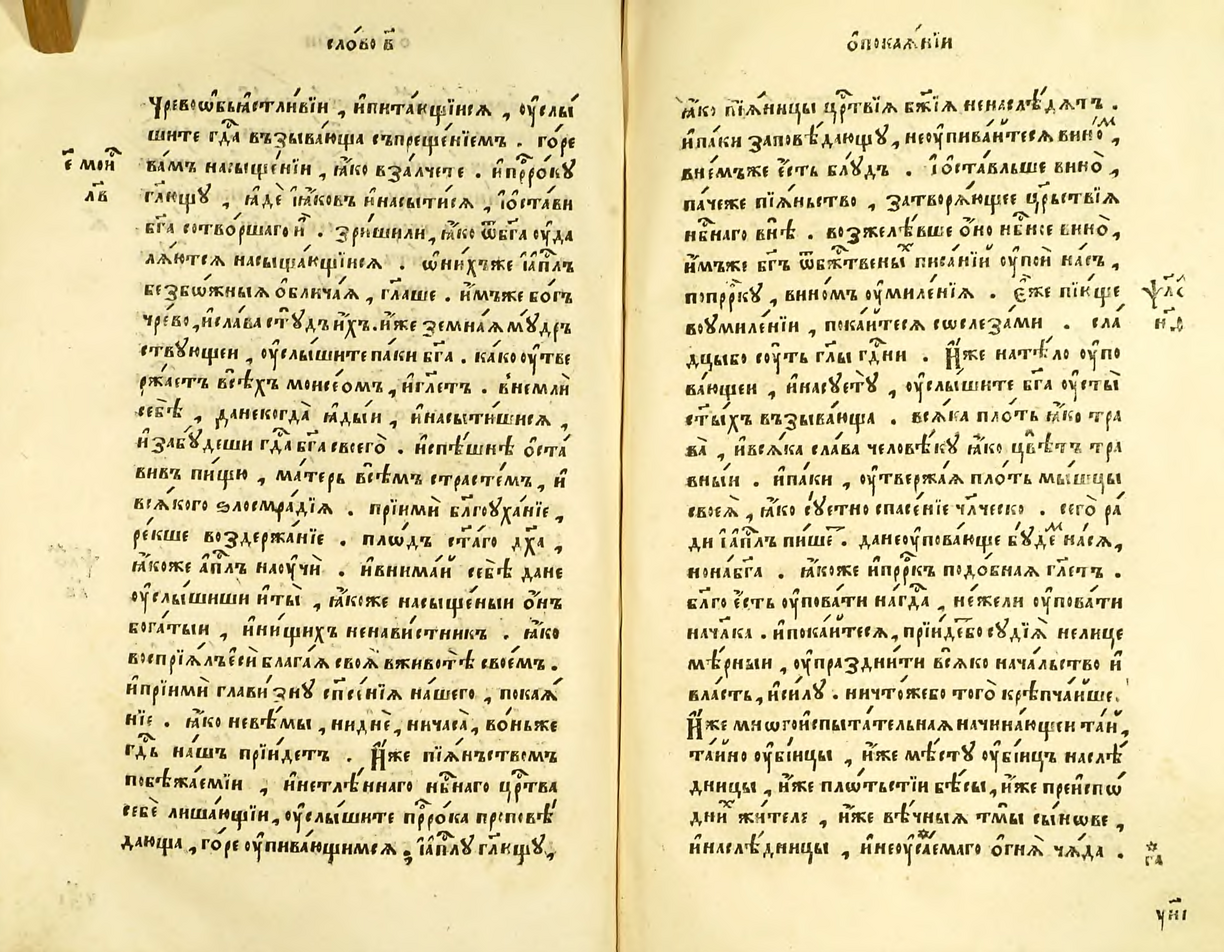 сло́во в҃
чревоѡбьꙗ́стливїи , и҆пита́ющїисѧ , ᲂу҆слы́
шите гд҇а възыва́юща съпреще́нїемъ . го́ре
ва́мъ насыще́нїи , ꙗ҆́ко вза́лчете . и҆прⷪ҇ро́кꙋ
е҃ мои҇
гл҃ющꙋ , ꙗ҆дѐ і҆ꙗ́ковъ и҆насы́тисѧ , і҆ѡ҆ста́ви
л҃в
бг҃а сотво́ршаго и҆̀ . зри́шили , ꙗ҆́ко ѿбг҃а ᲂу҆да
лѧ́ютсѧ насыща́ющїисѧ . ѡ҆ни́хъже і҆а҆пⷭ҇лъ
безбѡ́жныѧ ѡ҆блича́ѧ , гл҃аше . и҆́мъже бо́гъ
чре́во , и҆сла́ва стꙋ́дъ и҆́хъ . и҆́же земна́ѧ мꙋ́др
ствꙋющеи , ᲂу҆слы́шите па́ки бг҃а . ка́ко ᲂу҆тве
ржа́етъ всѣ́хъ моисе́омъ , и҆гл҃етъ . внемлѝ
себѣ̀ , данекогда̀ ꙗ҆ды́и , и҆насы́тишисѧ ,
и҆забꙋ́деши гд҇а бг҃а своего̀ . и҆спѣ́шнѣ ѡ҆ста́
вивъ пи́щꙋ , ма́терь всѣ́мъ страсте́мъ , и҆
всѧ́кого ѕлосмра́дїѧ . прїимѝ бл҃гоꙋха́нїе ,
ре́кше воздержа́нїе . пло́дъ ст҃а́го дх҃а ,
ꙗ҆́коже а҆пⷭ҇лъ наᲂу҆чѝ . и҆внима́й себѣ̀ дане
ᲂу҆слы́шиши и҆ты̀ , ꙗ҆́коже насыще́ныи ѻ҆́нъ
бога́тыи , и҆ни́щихъ ненави́стникъ . ꙗ҆́ко
воспрїѧ́лъ є҆сѝ блага́ѧ своѧ̀ вживотѣ̀ свое́мъ .
и҆прїимѝ глави́знꙋ спⷭ҇е́нїѧ на́шего , покаѧ́
нїе . ꙗ҆́ко невѣ́мы , ниднѐ , ничаса̀ , во́ньже
гд҇ь на́шъ прїи́детъ . И҆́же пїѧ́ньствомъ
побѣжа́емїи , и҆нетлѣ́ннаго нб҇наго цр҇тва
себѐ лиша́ющїи , ᲂу҆слы́шите прⷪ҇ро́ка преповѣ́
дающа , го́ре ᲂу҆пива́ющимсѧ , і҆а҆пⷭ҇лꙋ гл҃ющꙋ ,
ѡ҆покаѧ́нїи
ꙗ҆́ко пїѧ́ницы цр҇твїѧ бж҃їѧ ненаслѣ́дѧтъ .
и҆па́ки заповѣ́дающꙋ , неᲂу҆пива́йтесѧ вино́ⷨ ,
вне́мъже є҆́сть блꙋ́дъ . і҆ѡ҆ста́вльше вино̀ ,
па́чеже пїѧ́ньство , затворѧ́ющее цр҇ьствїѧ
нб҇наго внѣ̀ . возжелѣ́вше ѻ҆́но нб҇ное вино̀ ,
и҆́мъже бг҃ъ ѿбж҇твены́ⷯ писа́нїй ᲂу҆по́й на́съ ,
попрⷪ҇ркꙋ , вино́мъ ᲂу҆миле́нїѧ . є҆́же пїю́ще
ѱл҇о҃
воᲂу҆миле́нїи , пока́йтесѧ сосле́за́ми . сла́
н҃ѳ
дцыбо сꙋ́ть гл҃ы гд҇ни . И҆́же натѣ́ло ᲂу҆по
ва́ющеи , и҆насꙋетꙋ̀ , ᲂу҆слы́шите бг҃а ᲂу҆сты̀
ст҃ы́хъ възыва́юща . всѧ́ка пло́ть ꙗ҆́ко тра
ва̀ , и҆всѧ́ка сла́ва человѣ́кꙋ ꙗ҆́ко цвѣ́тъ тра
вны́и . и҆па́ки , ᲂу҆твержа́ѧ пло́ть мы́шцы
своеѧ̀ , ꙗ҆́ко сꙋ́етно спасе́нїе чл҃ческо . сего̀ ра́
ди і҆а҆пⷭ҇лъ пи́шеⷮ . данеᲂу҆пова́юще бꙋ́деⷨ нася̀ ,
нонабг҃а . ꙗ҆́коже и҆прⷪ҇ркъ подо́бнаѧ гл҃етъ .
бл҃го є҆́сть ᲂу҆пова́ти нагд҇а , не́жели ᲂу҆пова́ти
начл҃ка . и҆пока́йтесѧ , прїи́детбо сꙋдїѧ̀ нелице
мѣ́рныи , ᲂу҆праздни́ти всѧ́ко нача́льство и҆
вла́сть , и҆си́лꙋ . ничто́жебо того̀ крѣпча́йше .
И҆́же мнѡгои҆спыта́тельнаѧ начина́ющеи та́и ,
та́йно ᲂу҆бі́йцы , и҆́же мѣ́стꙋ ᲂу҆бі́йцъ наслѣ́
дницы , и҆́же пло́тьстїи бѣ́сы , и҆́же преи҆спѡ́
дни́ⷯ жи́теле , и҆́же вѣ́чныѧ тмы̀ сы́нѡве ,
и҆наслѣ́дницы , и҆неᲂу҆га́саемаго ѻ҆гнѧ̀ ча́да .
* га
ѵ҃нı